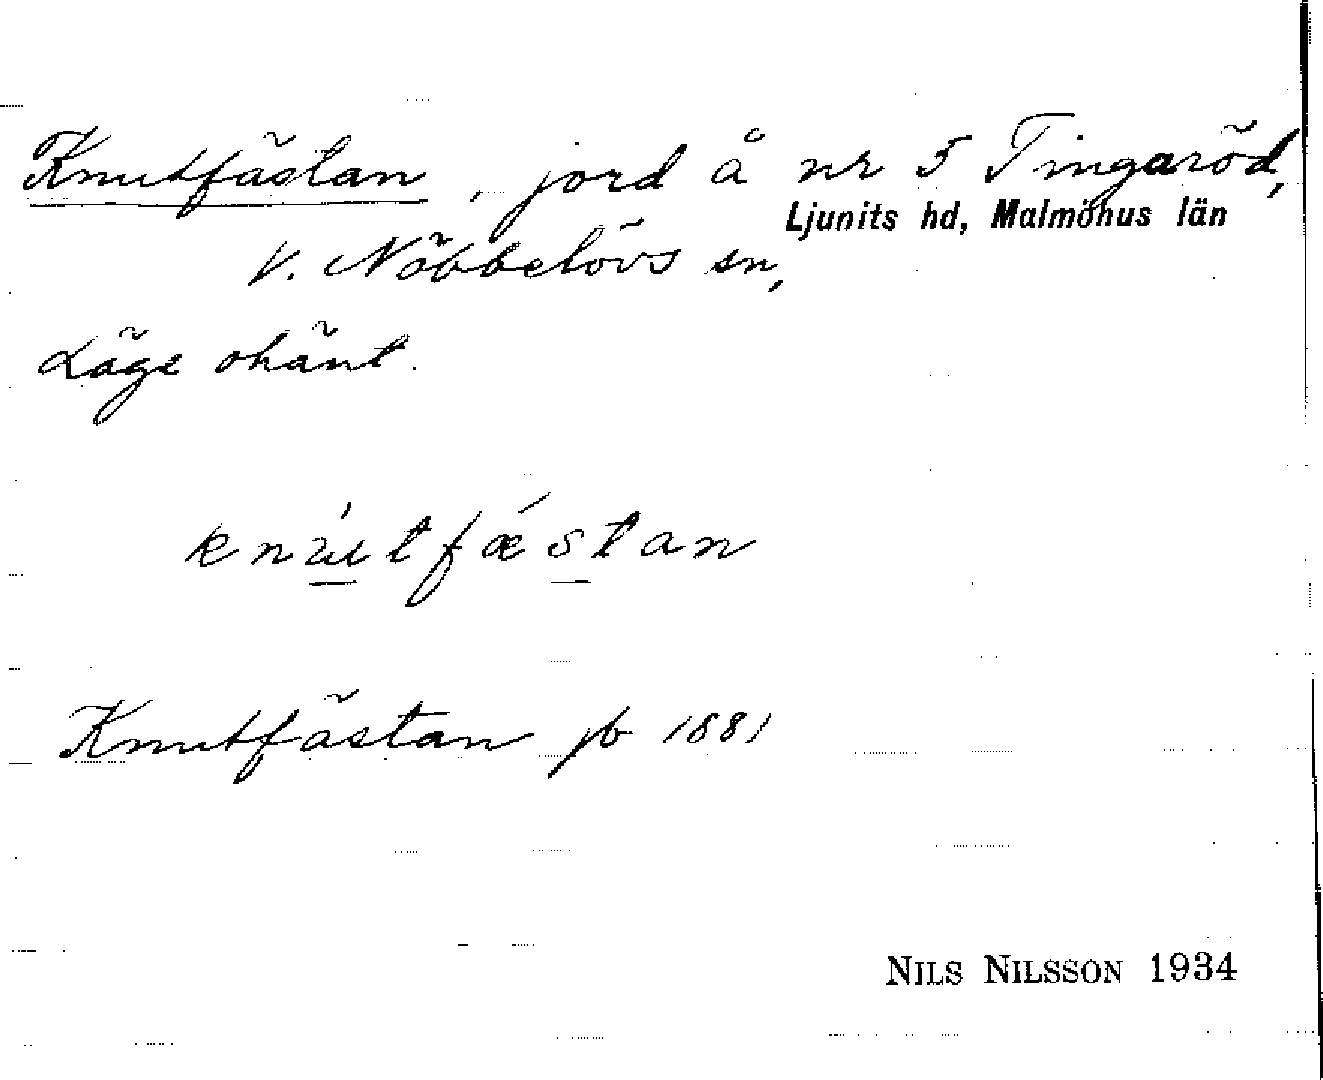 Knutfästan, jord å nr 5 Tingaröd,
Ljunits hd, Malmöhus län
V. Nöbbelövs sn,
Läge okänt.
knùtfǽstan
Knutfästan jb 1881
NILS NILSSON 1934